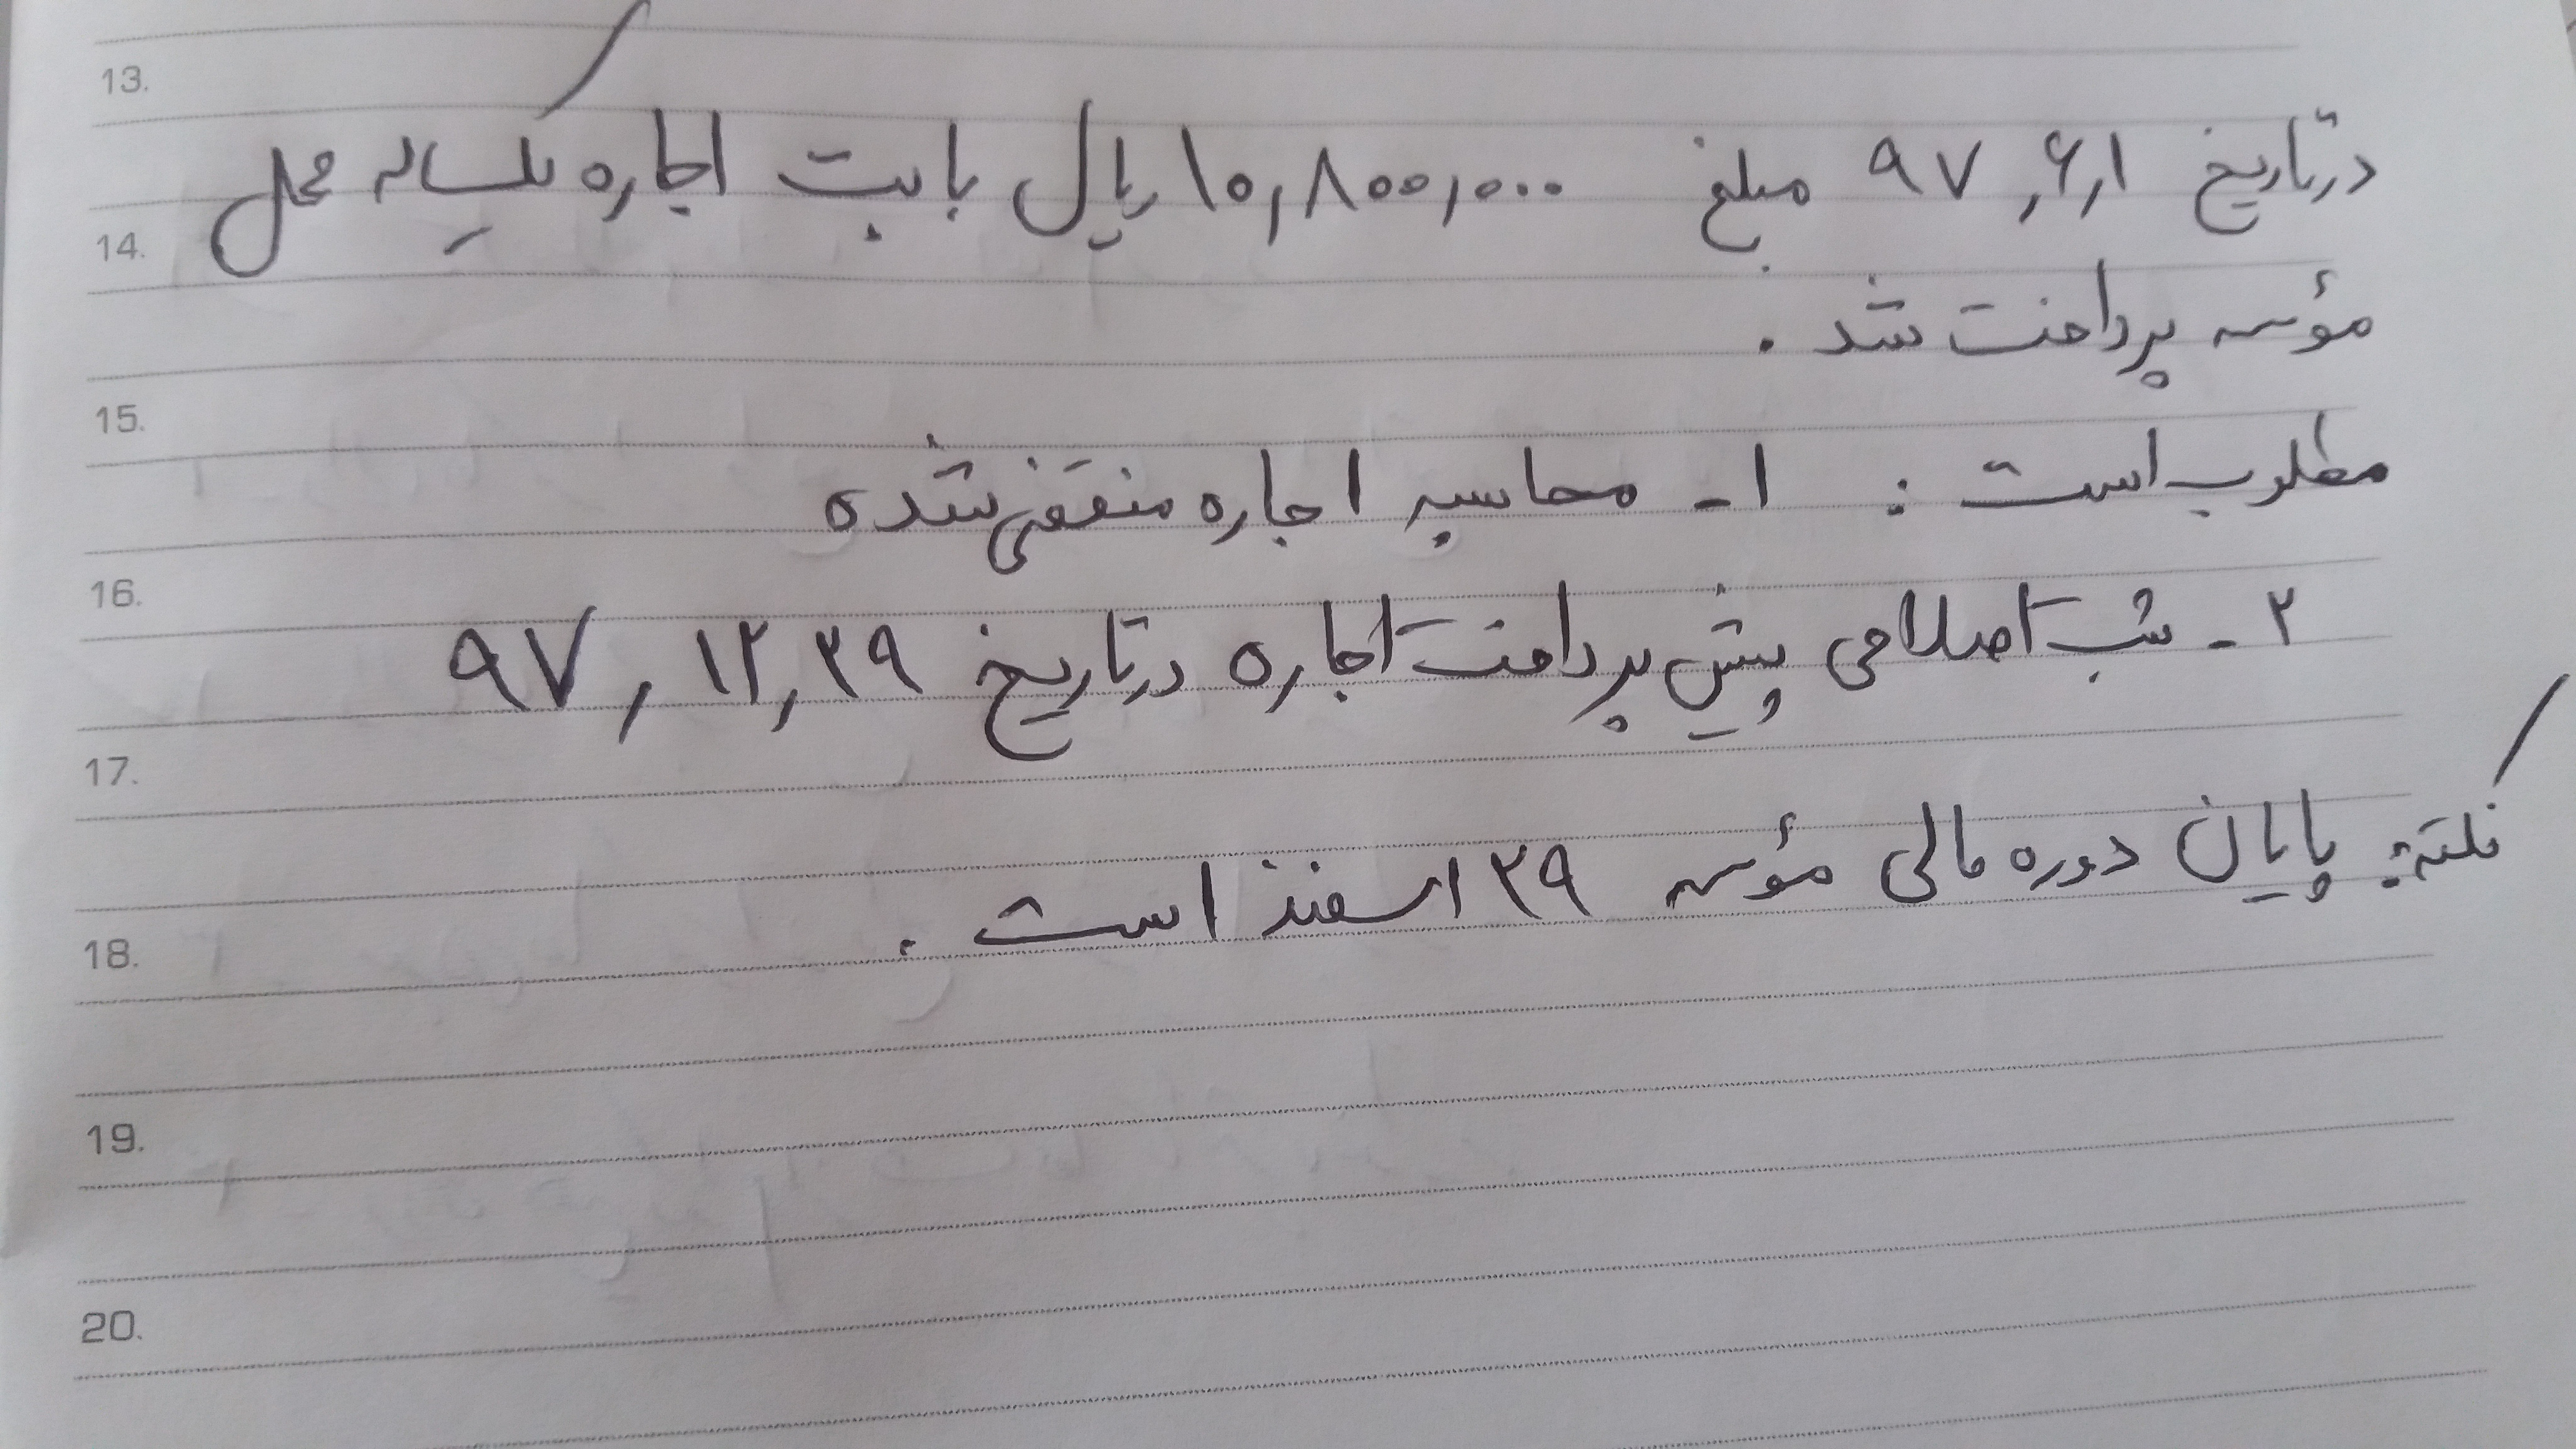 13.
در تاریخ ۹۷٫۶٫۱ مبلغ ۱۰٫۸۰۰٫۰۰۰ ریال بابت اجاره یکساله محل
14.
مؤسسه پرداخت شد .
15.
مطلوب است : ۱- محاسبه اجاره منقضی شده
16.
۲- ثبت اصلاحی پیش پرداخت اجاره در تاریخ ۹۷٫۱۲٫۲۹
17.
نکته: پایان دوره مالی مؤسسه ۲۹ اسفند است .
18.
19.
20.